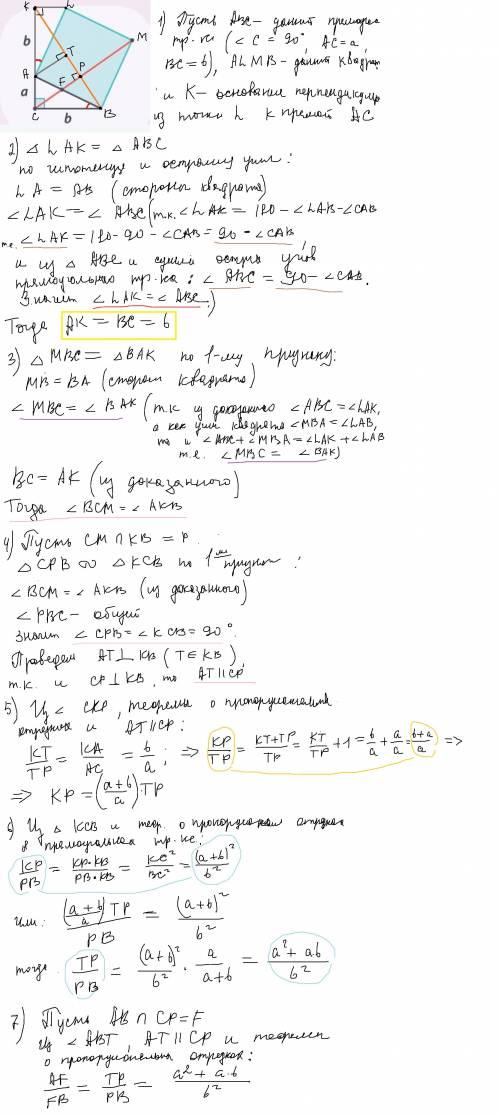 K L M T P A F C B b a b
1) Пусть ABC – данный прямоуг.
тр-к (∠C = 90°, AC = a,
BC = b), ALMB – данный квадрат
и K – основание перпендикуляра
из точки L к прямой AC
2) △LAK = △ABC
по гипотенузе и острому углу:
LA = AB (стороны квадрата)
∠LAK = ∠ABC (т.к. ∠LAK = 180 - ∠LAB - ∠CAB
т.е. ∠LAK = 180 - 90 - ∠CAB = 90 - ∠CAB
и из △ABC и суммы острых углов
прямоугольного тр-ка: ∠ABC = 90 - ∠CAB.
Значит ∠LAK = ∠ABC.)
Тогда AK = BC = b
3) △MBC = △BAK по 1-му признаку:
MB = BA (стороны квадрата)
∠MBC = ∠BAK (т.к. из доказанного ∠ABC = ∠LAK,
а как углы квадрата ∠MBA = ∠LAB,
то и ∠ABC + ∠MBA = ∠LAK + ∠LAB
т.е. ∠MBC = ∠BAK)
BC = AK (из доказанного)
Тогда ∠BCM = ∠AKB
4) Пусть CM ∩ KB = P.
△CPB ∞ △KCB по 1му признаку:
∠BCM = ∠AKB (из доказанного)
∠PBC – общий
Значит ∠CPB = ∠KCB = 90°.
Проведем AT ⊥ KB (T ∈ KB),
т.к. и CP ⊥ KB, то AT ∥ CP
5) Из ∠CKP, теоремы о пропорциональных
отрезках и AT ∥ CP:
KT/TP = KA/AC = b/a; ⇒ KP/TP = KT+TP/TP = KT/TP + 1 = b/a + a/a = b+a/a ⇒
⇒ KP = (a+b/a) · TP
6) Из △KCB и теор. о пропорциональн отрезках
в прямоугольном тр-ке:
KP/PB = KP·KB/PB·KB = KC²/BC² = (a+b)²/b²
или: (a+b/a)TP/PB = (a+b)²/b²
тогда TP/PB = (a+b)²/b² · a/a+b = a²+ab/b²
7) Пусть AB ∩ CP = F
Из ∠ABT, AT ∥ CP и теоремы
о пропорциональн отрезках:
AF/FB = TP/PB = a²+a·b/b²